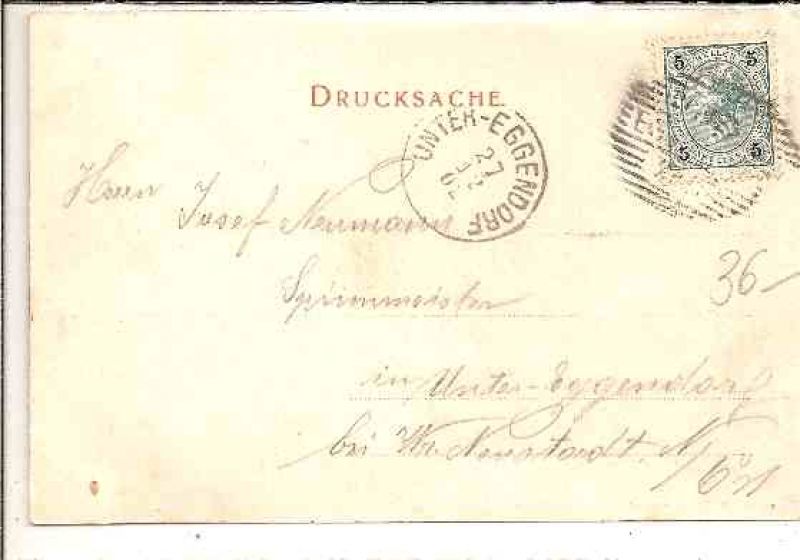 DRUCKSACHE.
5 5
5 5
UNTER-EGGENDORF
27
12
Herrn
Josef Neumann
Spinnmeister
36-
in Unter-Eggendorf
bei Wr. Neustadt. N/
Öst